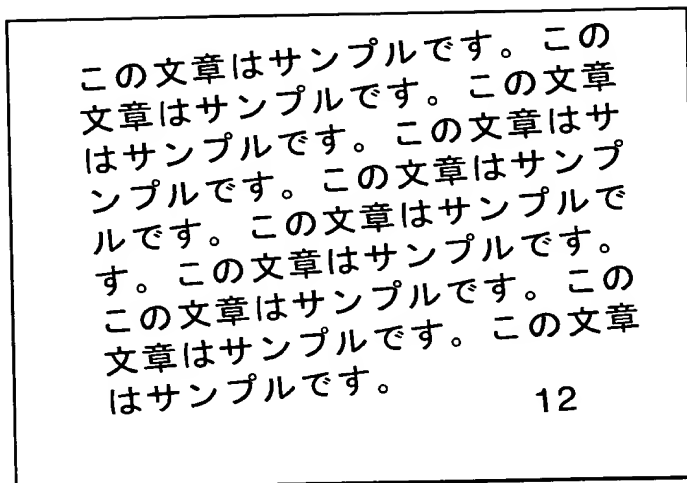 この文章はサンプルです。この
文章はサンプルです。この文章
はサンプルです。この文章はサ
ンプルです。この文章はサンプ
ルです。この文章はサンプルで
す。この文章はサンプルです。
この文章はサンプルです。この
文章はサンプルです。この文章
はサンプルです。
12